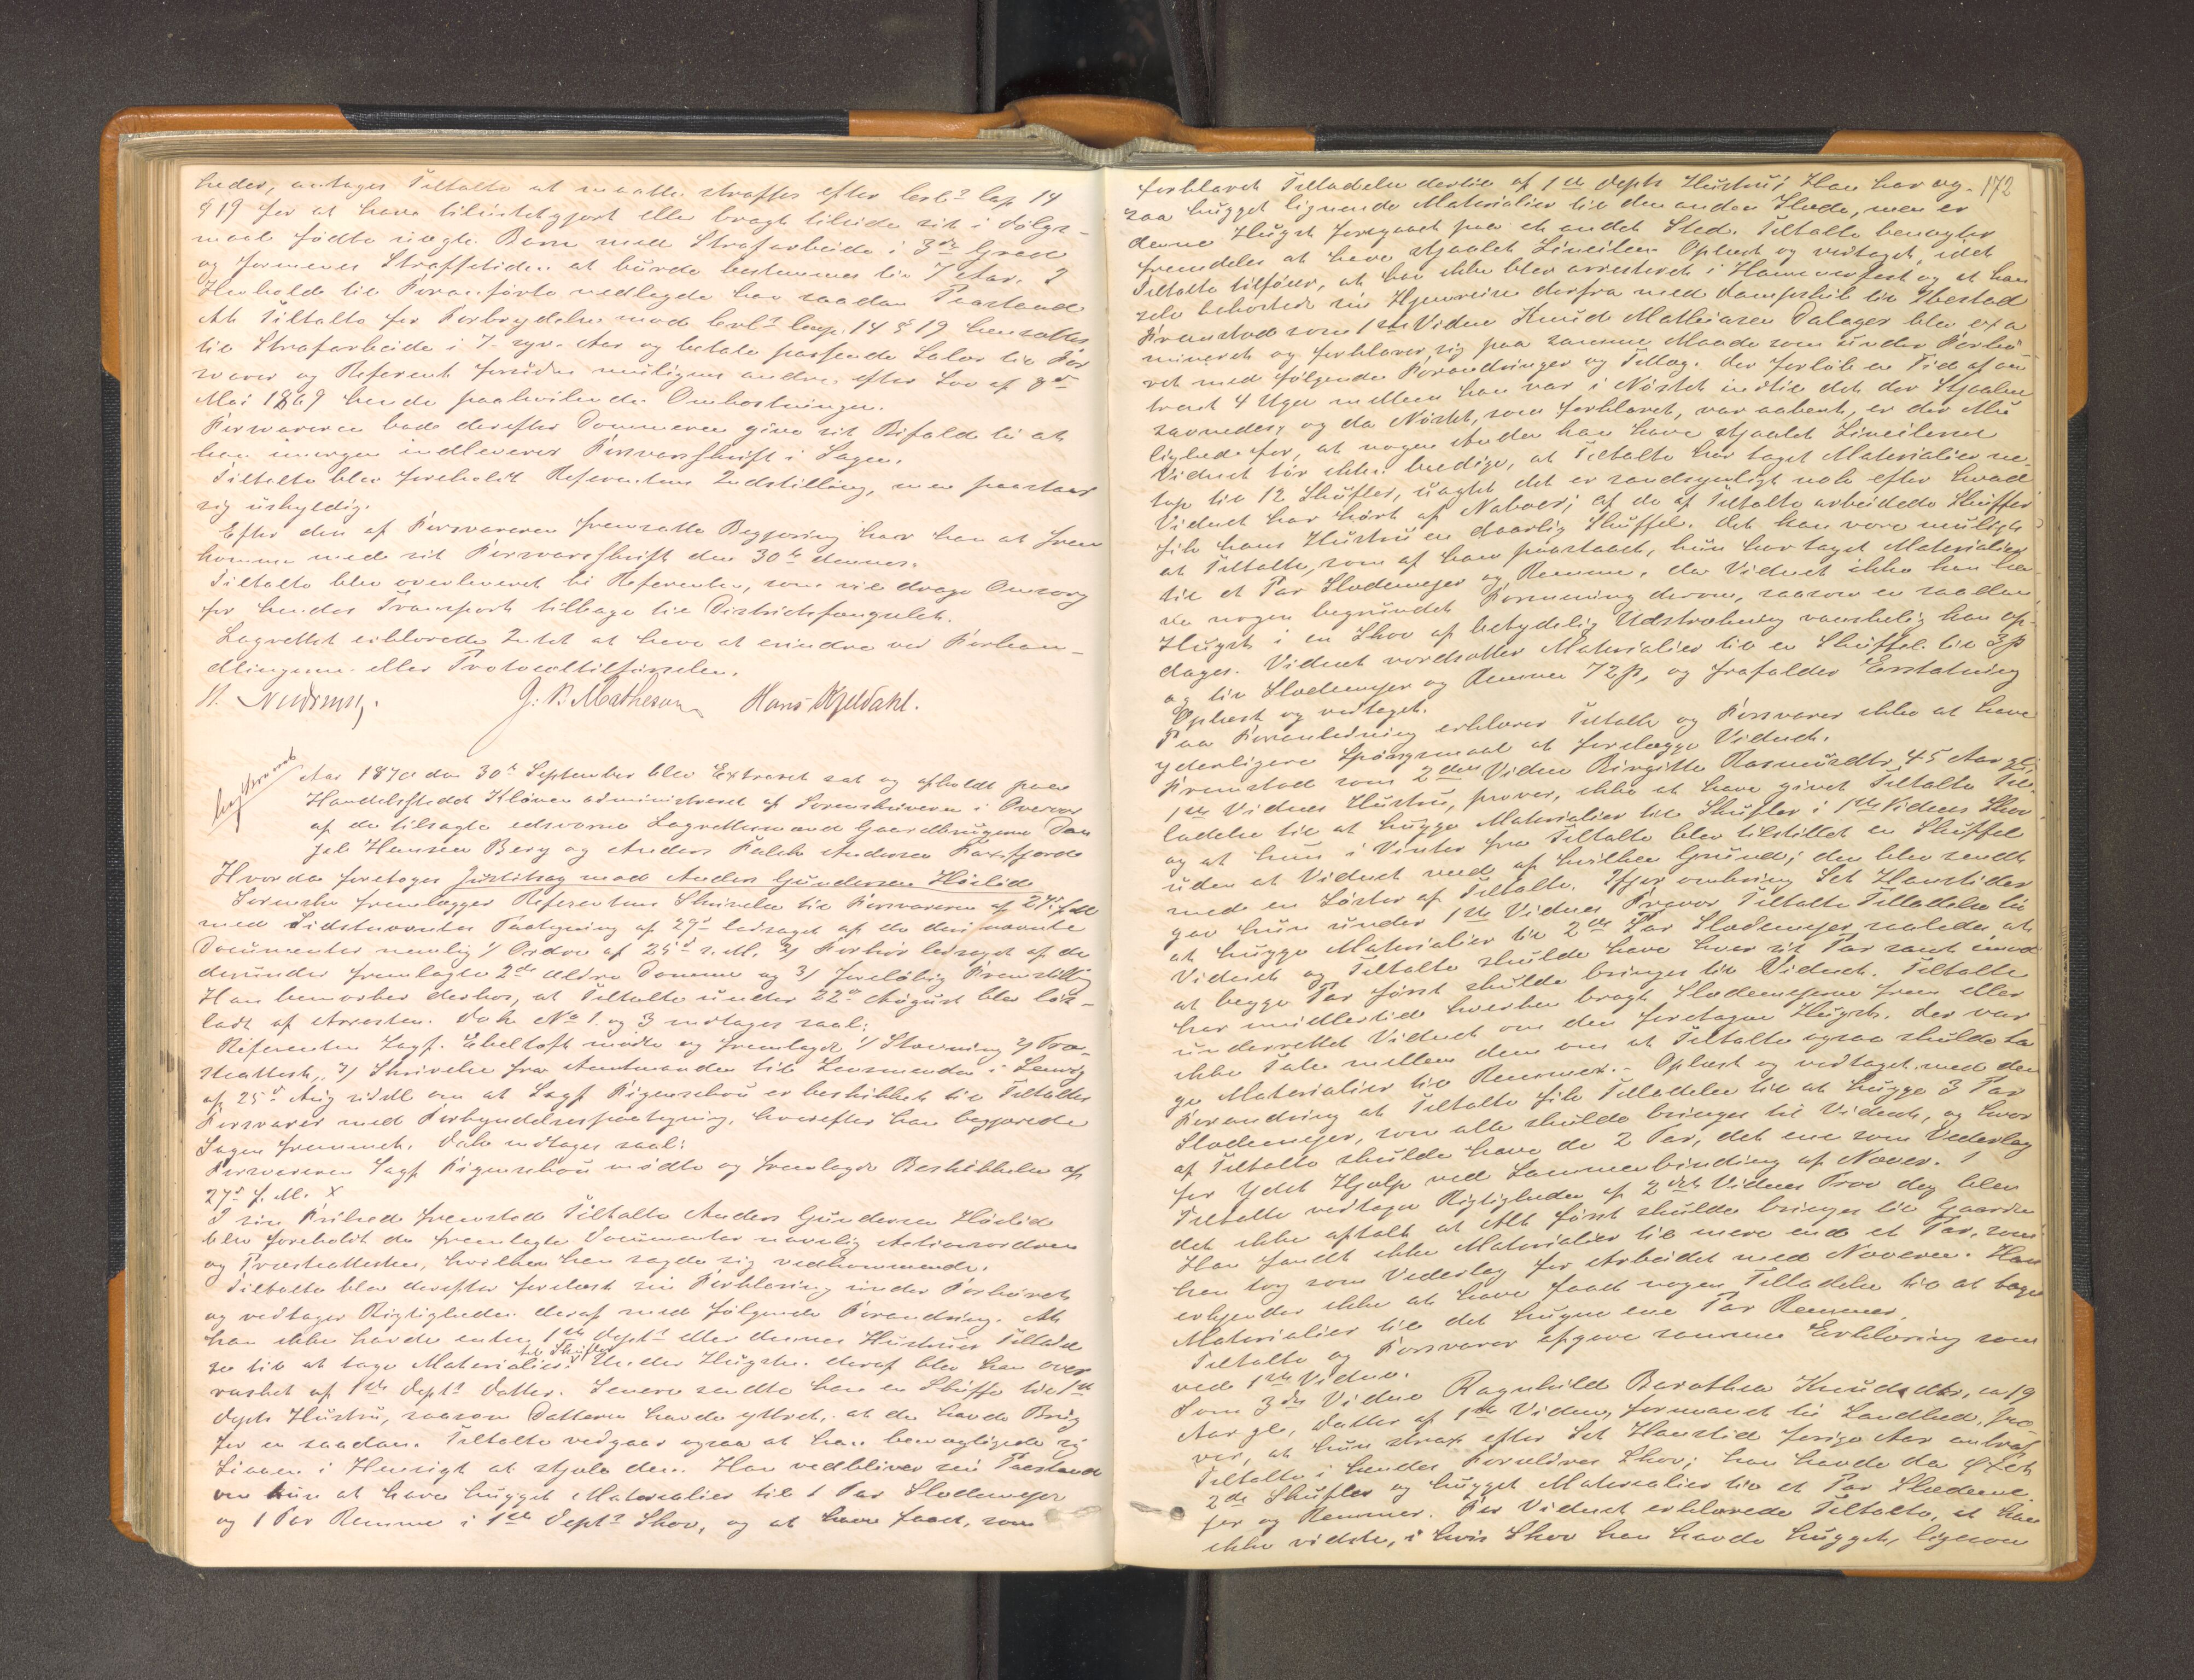 heder, antages Tiltalte at maatte straffes efter Crl. Cap 14
§ 19 for at have tilintetgjort eller bragt tilside sit i Dølgs-
maal fødte uægte Barn med Strafarbeide i 3die Grad
og formenes Straffetiden at burde bestemmes til 7 Aar. I
Henhold til Foranførte nedlagde han saadan Paastand
At Tiltalte for Forbrydelse mod Crl. Cap. 14 § 19 hensættes
til Strafarbeide i 7 - syv - Aar og betale passende Salær til For
svarer og Referent foruden muligens andre efter Lov af
Mai 1869 hende paahvilende Omkostninger.
Forsvareren bad derefter Dommeren give sit Bifald til at
han imorgen indleverer Forsvarsskrift i Sagen.
Tiltalte blev foreholdt Referentens Indstilling, men paastaar
sig uskyldig.
Efter den af Forsvareren fremsatte Begjæring har han at frem
komme med sit Forsvarsskrift den 30te dennes.
Tiltalte blev overleveret til Referenten, som vil drage Omsorg
for hendes Transport tilbage til Districtsfængselet.
Lagrettet erklærede Intet at have at erindre ved Forhan-
dlingerne eller Protocoltilførselen.
G. B. Mathesen Hans Kjeldahl.
Aar 1870 den 30te September blev Extraret sat og afholdt paa
Handelsstedet Kløven administreret af Sorenskriveren i Overvær
af de tilsagte edsvorne Lagrettesmænd Gaardbrugerne Dan
jel Hansen Berg og Anders Falch Andersen Faxfjord
Hvorda foretoges Justitssag mod Anders Gundersen Høilid
Sorenskr fremlægger Referentens Skrivelse til Forsvareren af 27de f M
med Sidstnævntes Paategning af 29de ledsaget af de deri nævnte
Documenter nemlig 1/ Ordre af 25de s. M. 2/ Forhør ledsaget af de
derunder fremlagte 2de ældre Domme og 3/ foreløbig Fremstilling
Han bemærker derhos, at Tiltalte under 22de August blev løs-
ladt af Arresten. Dok No 1 og 3 indtages saal:
Referenten Sagf. Ebeltoft mødte og fremlagde 1/ Stævning 2/ Præ-
steattest, 3/ Skrivelse fra Amtmanden til Lensmanden i Lenvig
af 25de Aug sidstl om at Sagf Rigenschou er beskikket til Tiltaltes
Forsvarer med Forkyndelsespaategning, hvorefter han begjærede
Sagen fremmet. Dok indtages saal:
Forsvareren Sagf Rigenschou mødte og fremlagde Beskikkelse af
27de f. M. x
I sin Frihed fremstod Tiltalte Anders Gundersen Høilid
blev foreholdt de fremlagte Documenter navnlig Actionsordren
og Præsteattesten, hvilken han sagde sig vedkommende.
Tiltalte blev derefter forelæst sin Forklaring under Forhøret
og vedtager Rigtigheden deraf med følgende Forandring. At
han ikke havde enten 1ste Depts eller dennes Hustrues Tilladel
se til at tage Materialier til Skufler. Under Hugsten deraf blev han over
rasket af 1ste Depts Datter. Senere sendte han en Skuffe til 1ste
Depts Hustru, saasom Datteren havde yttret, at de havde Brug
for en saadan. Tiltalte vedgaar ogsaa at han bemægtigede sig
Linen i Hensigt at stjæle den. Han vedbliver sin Paastand
om kun at have hugget Materialier til 1 Par Slædemeyer
og 1 Par Remme i 1ste Depts Skov, og at have faaet, som
172
forklaret Tilladelse dertil af 1ste Depts Hustru; Han har og-
saa hugget lignende Materialier til den anden Slæde, men er
denne Hugst foregaaet paa et andet Sted. Tiltalte benægter
fremdeles at have stjaalet Lineilen. Oplæst og vedtaget, idet
Tiltalte tilføier, at han ikke blev arresteret i Hammerfest og at han
selv bekostede sin Hjemreise derfra med Dampskib til Ibestad
Fremstod som 1ste Vidne Knud Mathiasen Dalager blev exa
mineret og forklarer sig paa samme Maade som under Forhø
ret med følgende Forandringer og Tillæg. Der forløb en Tid af om
trent 4 Uger mellem han var i Nøstet indtil det der Stjaalne
savnedes, og da Nøstet, som forklaret, var aabent, er der Mu
lighed for, at nogen Anden kan have stjaalet Lineilene
Vidnet tør ikke beedige, at Tiltalte har taget Materialierne
top til 12 Skufler, uagtet det er sandsynligt nok efter hvad
Vidnet har hørt af Naboer; af de af Tiltalte arbeidede Skuffer
fik hans Hustru en daarlig Skuffel. Det kan være muligt
at Tiltalte, som af ham paastaaet, kun har taget Materialier
til et Par Slædemeyer og Remme, da Vidnet ikke kan ha-
ve nogen begrundet Formening derom, saasom en saadan
Hugst i en Skov af betydelig Udstrækning vanskelig kan op-
dages. Vidnet værdsætter Materialier til en Skuffel til 3 ß
og til Slædemeyer og Remmer 72 ß, og frafalder Erstatning
Oplæst og vedtaget.
Paa Foranledning erklærer Tiltalte og Forsvarer ikke at have
yderligere Spørgsmaal at forelægge Vidnet.
Fremstod som 2det Vidne Birgitte Rasmusdtr 45 Aar gl,
1ste Vidnes Hustru, prover, ikke at have givet Tiltalte Til-
ladelse til at hugge Materialier til Skufler i 1ste Vidnes Skov
og at hun i Vinter fra Tiltalte blev tilstillet en Skuffel
uden at Vidnet ved af hvilken Grund; den blev sendt
med en Søster af Tiltalte. Ifjor omkring Set Hanstider
gav hun under 1ste Vidnes Fravær Tiltalte Tilladelse til
at hugge Materialier til 2de Par Slædemeyer saaledes at
Vidnet og Tiltalte skulde have hver sit Par samt imod
at begge Par først skulde bringes til Vidnet. Tiltalte
har imidlertid hverken bragt Slædemeyerne frem eller
underrettet Vidnet om den foretagne Hugst. Der var
ikke Tale mellem dem om at Tiltalte ogsaa skulde ta
ge Materialier til Remmer. - Oplæst og vedtaget med den
Forandring at Tiltalte fik Tilladelse til at hugge 3 Par
Slædemeyer, som alle skulde bringes til Vidnet, og hvor
af Tiltalte skulde have de 2 Par, det ene som Vederlag
for ydet Hjælp ved Sammenbinding af Næver.
Tiltalte vedtager Rigtigheden af 2det Vidnes Prov dog blev
det ikke aftalt at Alt først skulde bringes til Gaarden
Han fandt ikke Materialier til mere end et Par, som
han tog som Vederlag for Arbeidet med Næveren. Han
erkjender ikke at have faaet nogen Tilladelse til at tage
Materialier til det hugne ene Par Remmer.
Tiltalte og Forsvarer afgave samme Erklæring som
ved 1ste Vidne.
Som 3die Vidne Ragnhild Berathea Knudsdtr, ca 19
Aar gl, Datter af 1ste Vidne, formanet til Sandhed, pro
ver, at hun strax efter Set Hanstid forrige Aar antraf
Tiltalte i hendes Forældres Skov; han havde da øxet
2de Skufler og hugget Materialier til et Par Slædeme
yer og Remmer. For Vidnet erklærede Tiltalte, at han
ikke vidste, i hvis Skov han havde hugget, ligesom